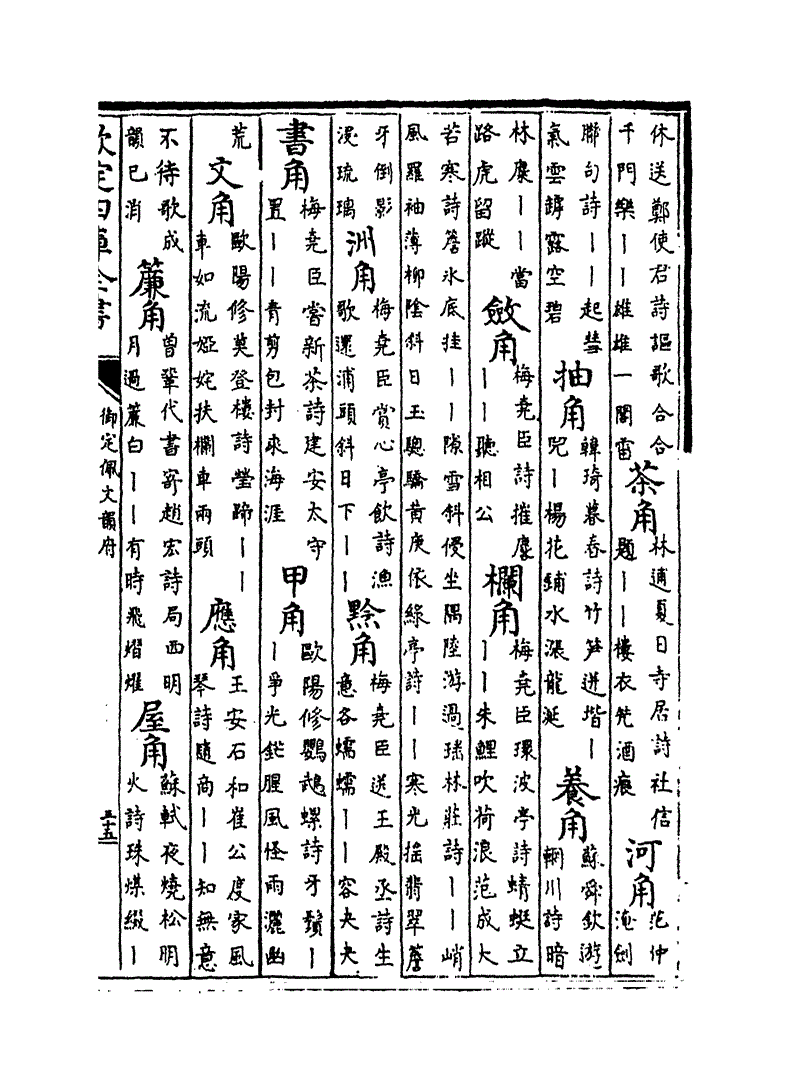 休送鄭使君詩謳歌合合千門樂丨丨雄雄一閣雷 茶角 林逋夏日寺居詩社信題丨丨樓衣筅酒痕 河角 范仲淹劍
聯句詩丨丨起彗氣雲罅露空碧 抽角 韓琦暮春詩竹笋迸堦丨兕丨楊花鋪水漲龍涎 養角 蘇舜欽游輞川詩暗
林麋丨丨當路虎留蹤 斂角 梅堯臣詩摧麈丨丨聽相公 欄角 梅堯臣環波亭詩蜻蜓立丨丨朱鯉吹荷浪范成大
苦寒詩簷氷底挂丨丨隙雪斜侵坐隅陸游過瑞林莊詩丨丨峭
風羅袖薄柳陰斜日玉驄驕黄庚依綠亭詩丨丨寒光搖翡翠簷
牙倒影浸琉璃 洲角 梅堯臣賞心亭飲詩漁歌還浦頭斜日下丨丨 黥角 梅堯臣送王殿丞詩生意各蠕蠕丨丨容夬夬
書角 梅堯臣嘗新茶詩建安太守置丨丨青剪包封來海涯 甲角 歐陽修鸚鵡螺詩牙鬚丨丨爭光鋩腥風怪雨灑幽
荒 文角 歐陽修莫登樓詩瑩蹄丨丨車如流婭姹扶欄車兩頭 應角 王安石和崔公度家風琴詩隨商丨丨知無意
不待歌成韻已消 簾角 曾鞏代書寄趙宏詩局西明月過簾白丨丨有時飛熠燿 屋角 蘇軾夜燒松明火詩珠煤綴丨
欽定四庫全書 御定佩文韻府 五十五